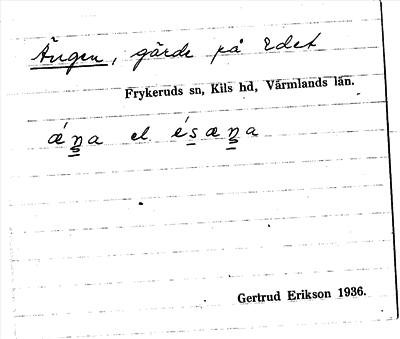 Ängen, gärde på Edet
Frykeruds sn, Kils hd, Värmlands län.
ǽŋa el ésæŋa
Gertrud Erikson 1936.